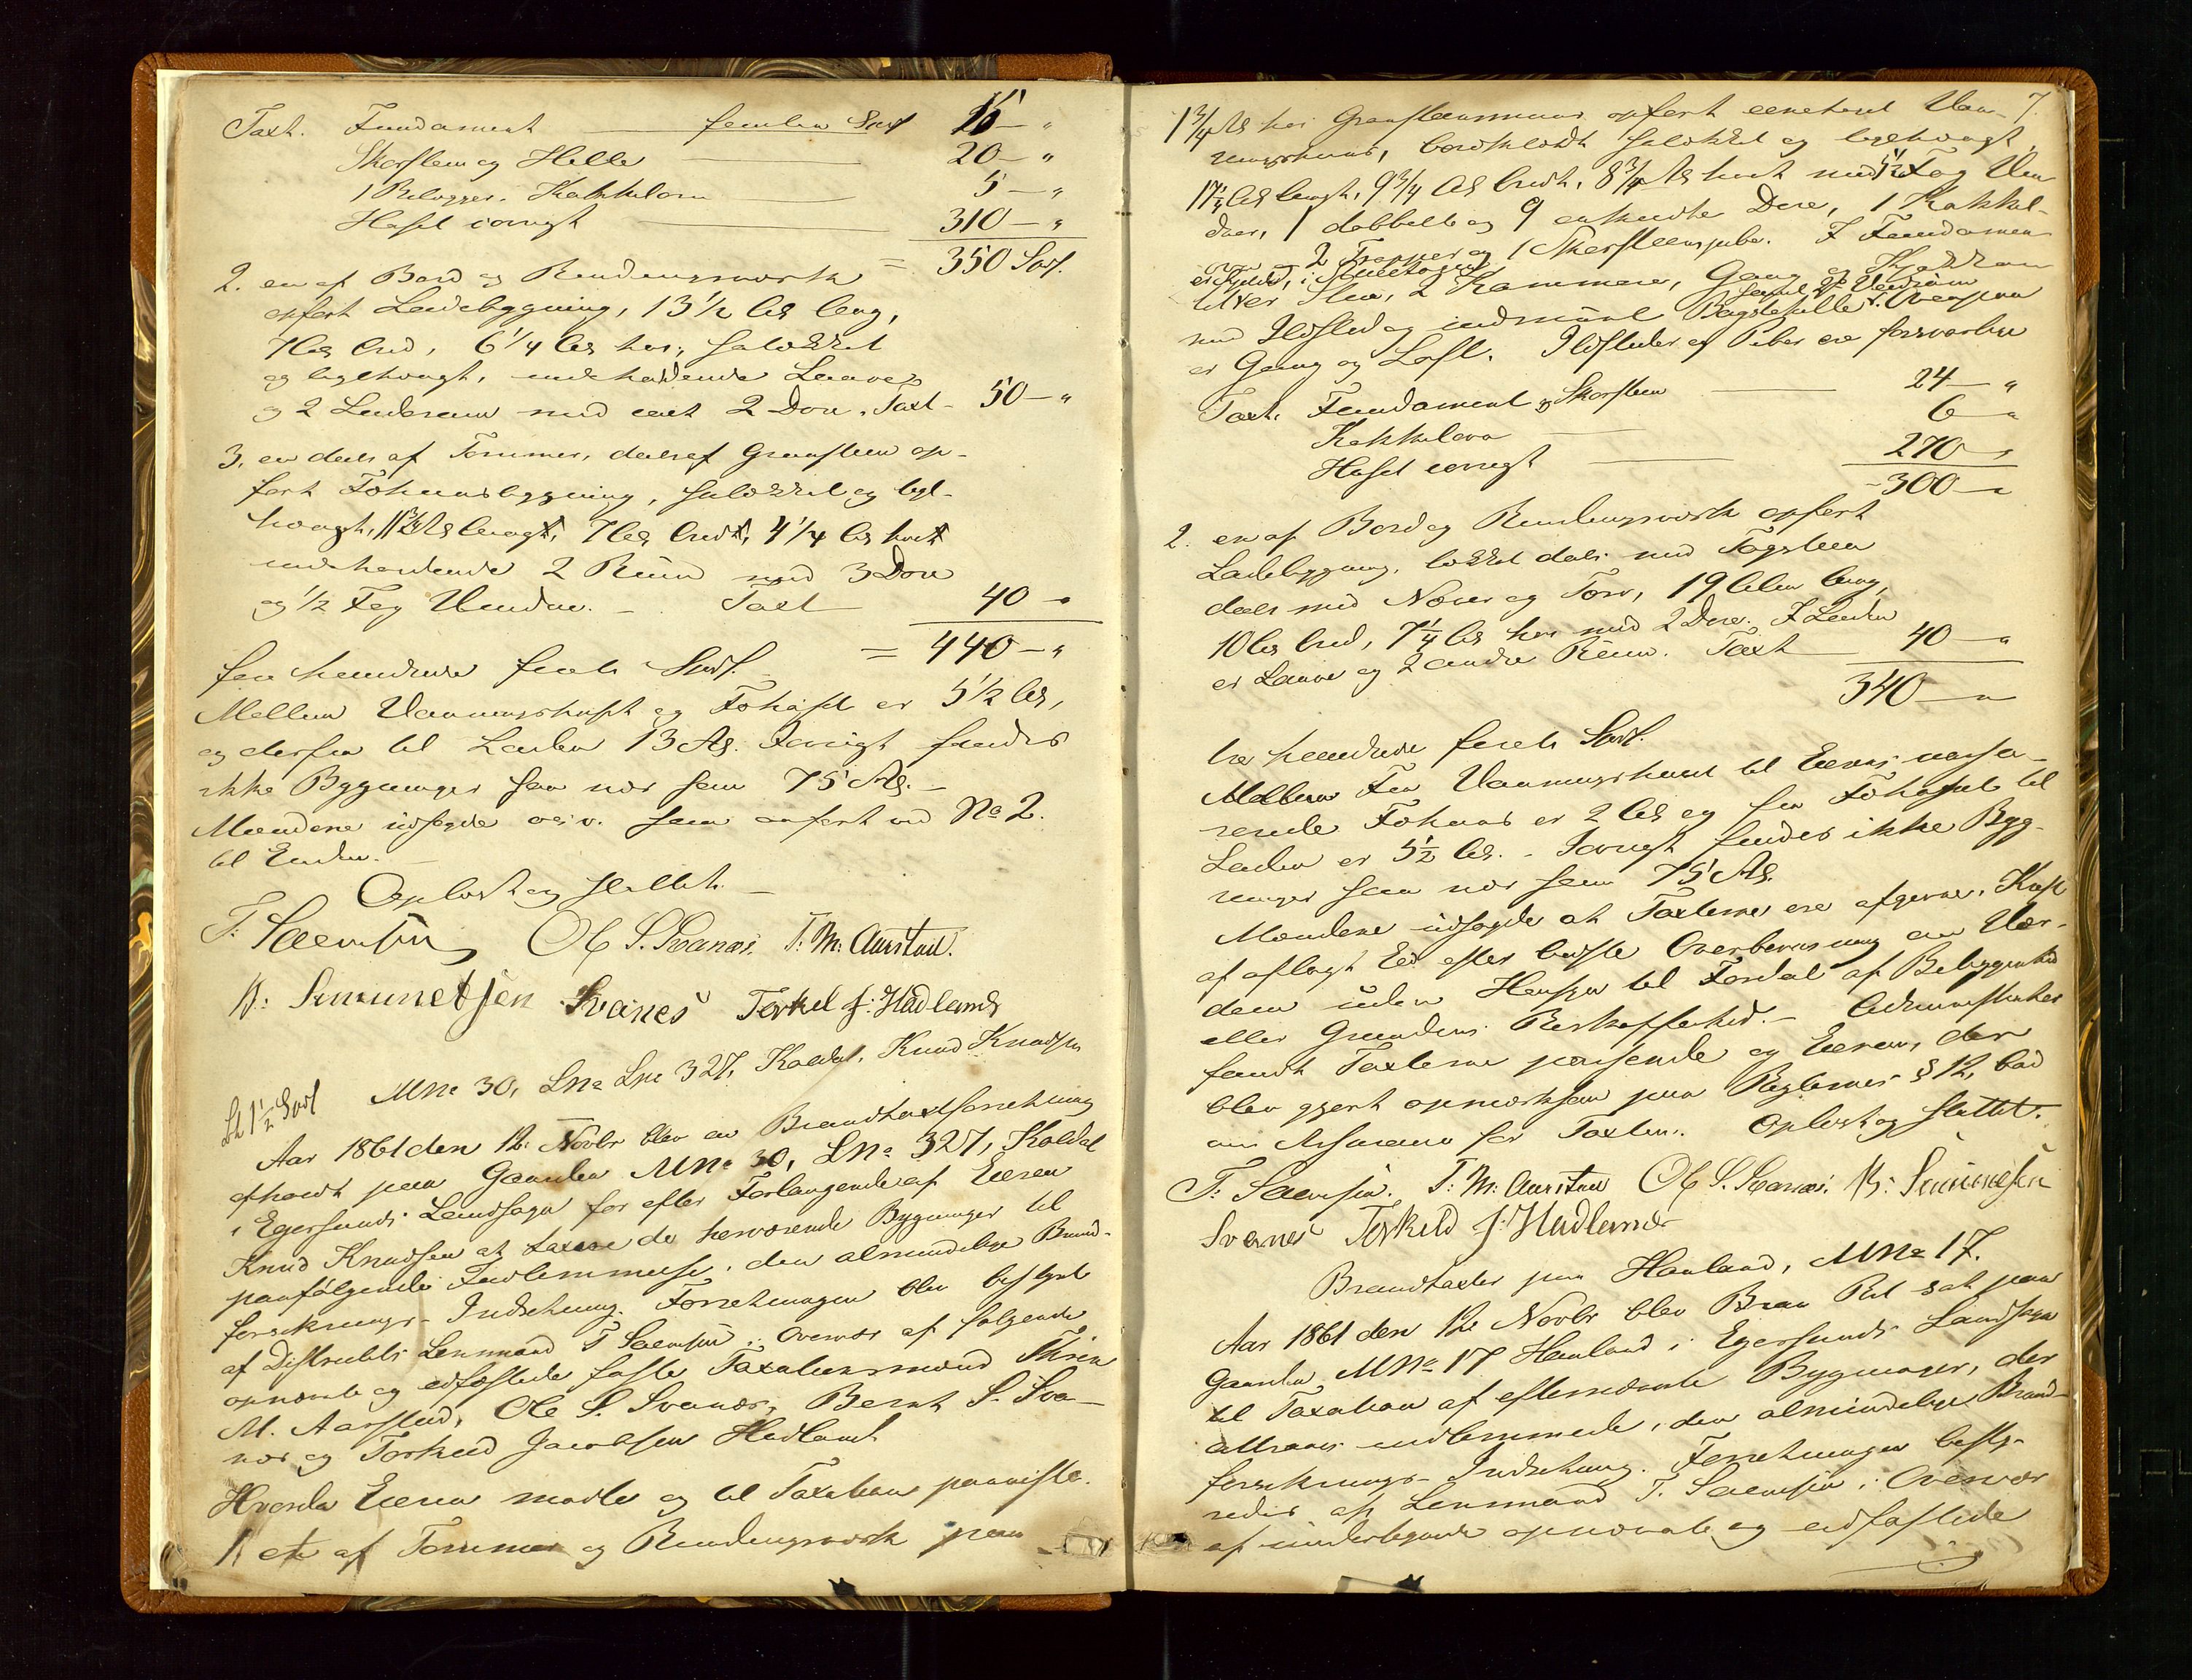 Taxt. Fundament femten Spd 15 — "
Skorsteen og Helle 20 — "
1 Bilægger Kakkelovn 5 — "
Huset iøvrigt 310 — "
= 350 Spd.
2. en af Bord og Bindingsværk
opført Ladebygning, 13 1/2 Al. lang,
7 Al. bred, 6 1/4 Al. høi,
og teglhængt, indeholdende Laave
og 2 Laderum med 2 Døre. Taxt - 50 — "
3. en deels af Tømmer, deels af Graasteen op-
ført Føhuusbygning, og tegl-
hængt, Al. længde, 7 Al. bredt, 4 1/4 Al. høit
indeholdende 2 Rum med 3 Døre
og 1/2 Fag Vindue. - Taxt 40 — "
= 440 — "
fire hundrede firti Spd.
Mellem Vaaningshuset og Føhuset er 5 1/2 Al.,
og derfra til Laden 13 Al. Iøvrigt findes
ikke Bygninger saa nær som 75 Al. —
Mændene udsagde o.s.v. som anført ved No 2.
til Enden. —
Oplæst og sluttet. —
T. Svensen Ole S. Svanæs. T: M: Aarstad.
B: Simmonetsen Svanes Torkel J: Hadland
1 1/2 Spd MNo 30, LNo 327, Koldal, Knud Knudsen
Aar 1861 den 12. Novbr blev en Brandtaxtforretning
afholdt paa Gaarden MNo 30, LNo 327, Koldal
i Egersunds Landsogn for efter Forlangende af Eieren
Knud Knudsen at taxere de herværende Bygninger til
paafølgende Indlemmelse i den almindelige Brand-
forsikrings-Indretning. Forretningen blev bestyret
af Distriktets Lensmand T Svensen i Overvær af følgende
opnævnte og edfæstede faste Taxationsmænd
M. Aarstad, Ole S. Svanæs, Bernt S. Sva-
næs og Torkild Jacobsen Hadland.
Hvorda Eieren mødte og til Taxation paaviste.
1. et af Tømmer og Bindingsværk paa
7.
1 3/4 Al. høi Graasteensmuur opført eenetages Vaa-
ningshuus, bordklædt og teglhængt,
17 1/4 Al. langt, 9 3/4 Al. bredt, 8 3/4 Al. høit med Fag Vin-
duer, 1 dobbelt og 9 enkelte Døre, 1 Kakkel-
ovn 2 Trapper og 1 Skorsteenspibe. I Fundamen-
tet er Kjelder, i
Stue, 2 Kammere, Gang og Kjøkken
med Ildsted og indmuret Bagstehelle. Ovenpaa
er Gang og Loft. Ildsteder og Piber ere forsvarlige
Taxt. Fundament og Skorsteen 24 — "
Kakkelovn 6 — "
Huset iøvrigt 270 — "
- 300 — "
2. en af Bord og Bindingsværk opført
Ladebygning, tækket dels med Tagsteen
deels med Næver og Torv, 19 Alen lang,
10 Al. bred, 7 1/4 Al. høi med 2 Døre. I Laden
er Laave og 2 andre Rum. Taxt 40 — "
340 — "
tre hundrede firti Spd.
Mellem Vaaningshuset til Eierens
Føhuus er 2 Al. og fra Føhuset til
Laden er 5 1/2 Al. - Iøvrigt findes ikke Byg-
ninger saa nær som 75 Al.
Mændene udsagde at Taxterne ere afgivne i Kraft
af aflagt Ed efter bedste Overbeviisning om Vær-
dien uden Hensyn til Fordel af Beliggenhed
eller Grundens Beskaffenhed. —
fandt Taxterne passende og Eieren, der
blev gjort opmærksom paa Reglernes § 12, bad
om Assurance for Taxten. Oplæst og sluttet.
T. Svensen. T: M: Aarstad Ole S. Svanæs. B: Simmonetsen
Svanes Torkild J: Hadland
Brandtaxter paa Hauland, MNo 17.
Aar 1861 den 12 Novbr blev Brau Ret sat paa
Gaarden MNo 17 Hauland i Egersunds Landsogn
til Taxation af efternævnte Bygninger, der
attraaes indlemmede i den almindelige Brand-
forsikrings-Indretning. Forretningen besty-
redes af Lensmand T. Svensen i Overvær
af undertegnede opnævnte og edfæstede